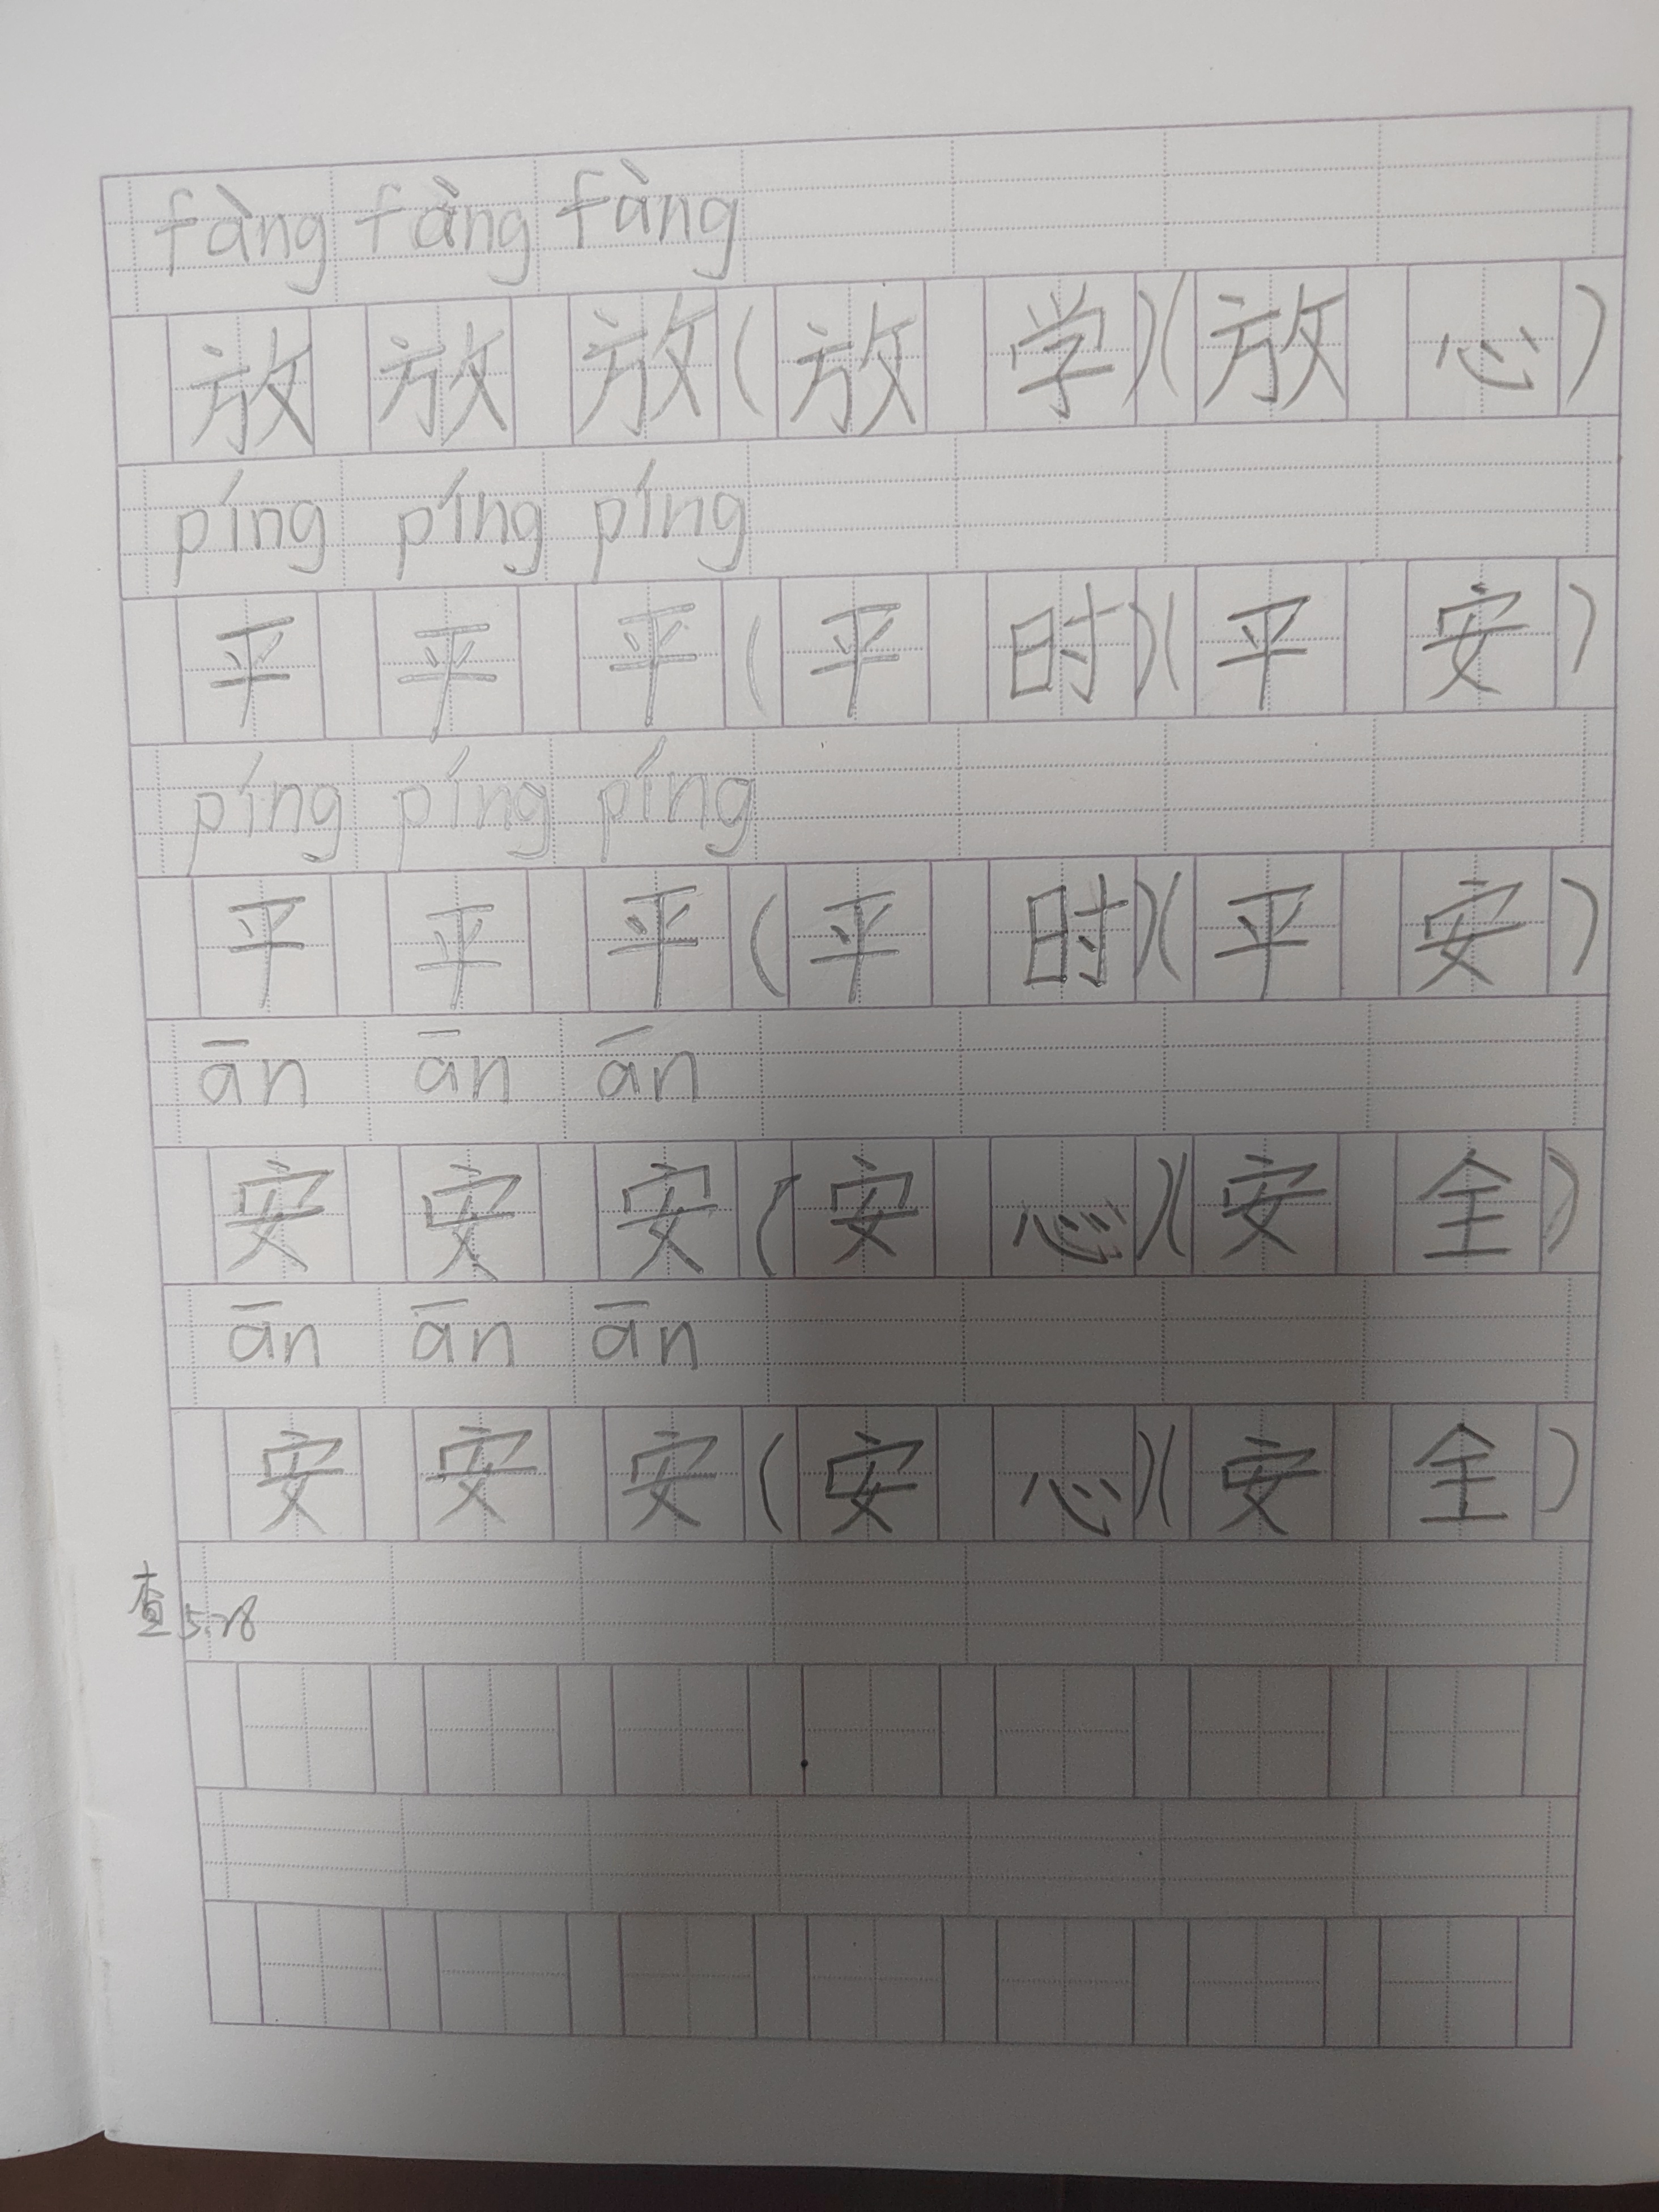 fàng fàng fàng
放 放 放 ( 放 学 ) ( 放 心 )
píng píng píng
平 平 平 ( 平 时 ) ( 平 安 )
píng píng píng
平 平 平 ( 平 时 ) ( 平 安 )
ān ān ān
安 安 安 ( 安 心 ) ( 安 全 )
ān ān ān
安 安 安 ( 安 心 ) ( 安 全 )
查 5.28